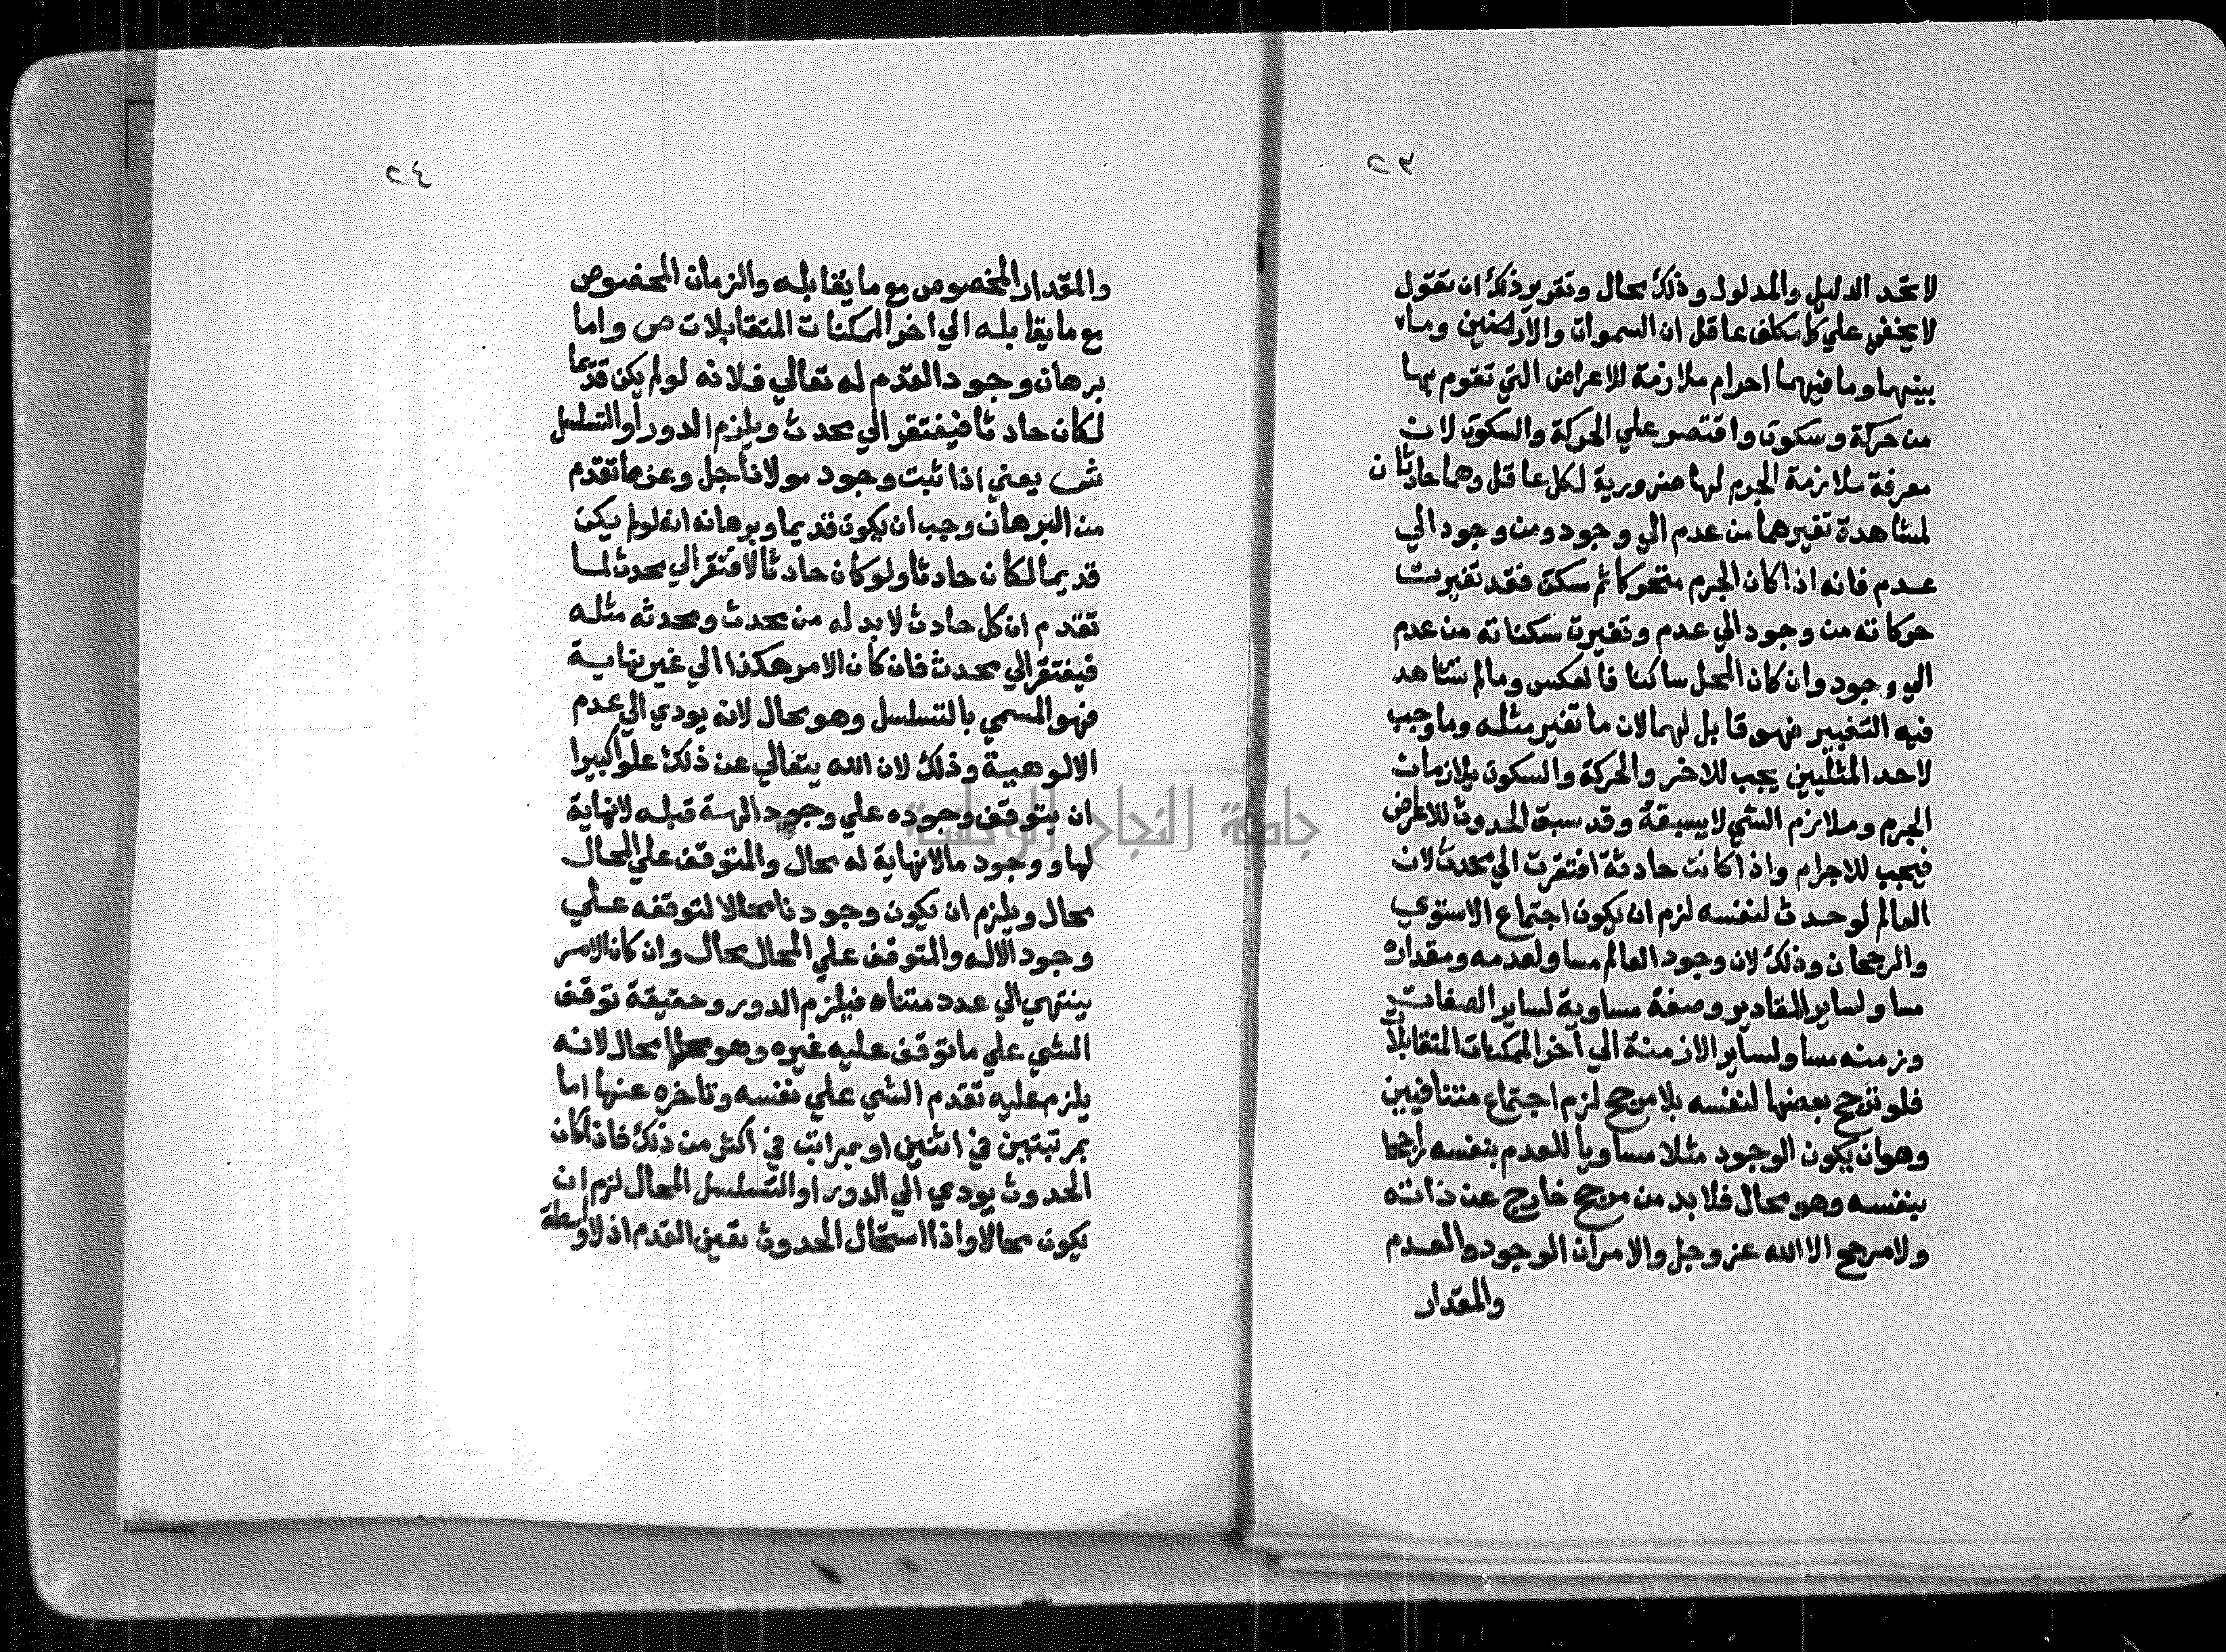 ٢٣
لاتحد الدليل والمدلول وذلك محال وتقرير ذلك ان تقول
لا يخفى علي كل مكلف عاقل ان السموات والارضين وما
بينهما وما فيهما اجرام ملازمة للاعراض التي تقوم بها
من حركة وسكون واقتصر علي الحركة والسكون لان
معرفة ملازمة الجرم لها ضرورية لكل عاقل وهما حادثان
لمشاهدة تغيرهما من عدم الي وجود ومن وجود الي
عدم فانه اذا كان الجرم متحركا ثم سكن فقد تغيرت
حركاته من وجود الي عدم وتغيرت سكناته من عدم
الي وجود وان كان المحل ساكنا فالعكس ومالم نشاهد
فيه التغيير فهو قابل لهما لان ما تغير مثله وما وجب
لاحد المثلين يجب للاخر والحركة والسكون يلازمان
الجرم وملازم الشي لا يسبقه وقد سبق الحدوث للاعراض
فيجب للاجرام واذا كانت حادثة افتقرت الي محدث لان
العالم لو حدث لنفسه لزم ان يكون اجتماع الاستوي
والرجحان وذلك لان وجود العالم مساو لعدمه ومقداره
مساو لساير المقادير وصفة مساوية لساير الصفات
وزمنه مساو لساير الازمنة الي آخر الممكنات المتقابلات
فلو ترجح بعضها لنفسه بلا مرجح لزم اجتماع متنافيين
وهو ان يكون الوجود مثلا مساويا للعدم بنفسه راجحا
بنفسه وهو محال فلا بد من مرجح خارج عن ذاته
ولا مرجح الا الله عز وجل والامران الوجود والعدم
والمقدار
٢٤
والمقدار المخصوص مع ما يقابله والزمان المخصوص
مع ما يقابله الي اخر الممكنات المتقابلات ص واما
برهان وجود القدم له تعالي فلانه لو لم يكن قديما
لكان حادثا فيفتقر الي محدث ويلزم الدور او التسلسل
ش يعني اذا ثبت وجود مولانا جل وعز ما تقدم
من البرهان وجب ان يكون قديما وبرهانه انه لو لم يكن
قديما لكان حادثا ولو كان حادثا لافتقر الي محدث لما
تقدم ان كل حادث لا بد له من محدث ومحدثه مثله
فيفتقر الي محدث فان كان الامر هكذا الي غير نهاية
فهو المسمي بالتسلسل وهو محال لانه يودي الي عدم
الالوهية وذلك لان الله يتعالي عن ذلك علوا كبيرا
ان يتوقف وجوده علي وجود الهة قبله لا نهاية
لها ووجود مالا نهاية له محال والمتوقف علي المحال
محال ويلزم ان يكون وجودنا محالا لتوقفه علي
وجود الاله والمتوقف علي المحال محال وان كان الامر
ينتهي الي عدد متناه فيلزم الدور وحقيقة توقف
الشي علي ما توقف عليه غيره وهو محال لانه
يلزم عليه تقدم الشي علي نفسه وتاخره عنها اما
بمرتبتين في اثنين او بمراتب في اكثر من ذلك فاذا كان
الحدوث يودي الي الدور او التسلسل المحال لزم ان
يكون محالا واذا استحال الحدوث تعين القدم اذ لا واسطة
جامعة النجاح الوطنية